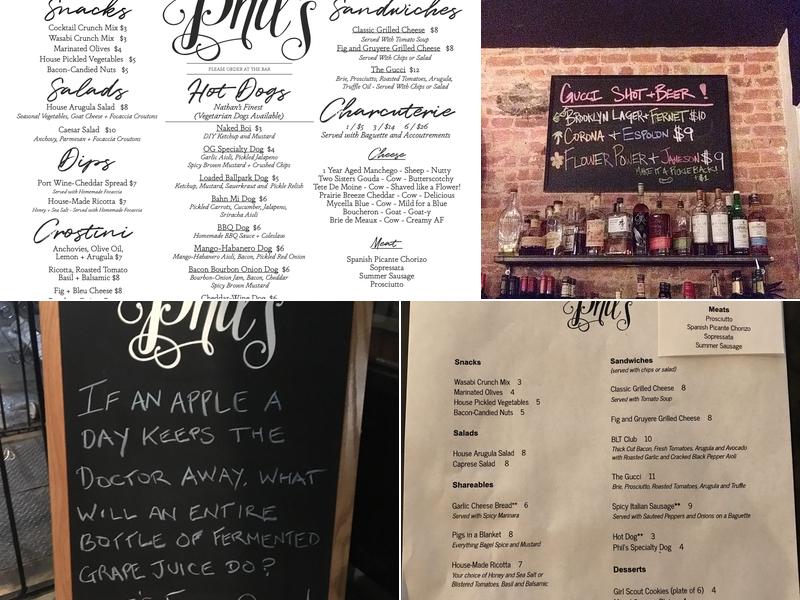 Snacks
Cocktail Crunch Mix $3
Wasabi Crunch Mix $3
Marinated Olives $4
House Pickled Vegetables $5
Bacon-Candied Nuts $5
Salads
House Arugula Salad $8
Seasonal Vegetables, Goat Cheese + Focaccia Croutons
Caesar Salad $10
Anchovy, Parmesan + Focaccia Croutons
Dips
Port Wine-Cheddar Spread $7
Served with Homemade Focaccia
House-Made Ricotta $7
Honey + Sea Salt - Served with Homemade Focaccia
Crostini
Anchovies, Olive Oil,
Lemon + Arugula $7
Ricotta, Roasted Tomato
Basil + Balsamic $8
Fig + Bleu Cheese $8
Phil's
PLEASE ORDER AT THE BAR
Hot Dogs
Nathan's Finest
(Vegetarian Dogs Available)
Naked Boi $3
DIY Ketchup and Mustard
OG Specialty Dog $4
Garlic Aioli, Pickled Jalapeno
Spicy Brown Mustard + Crushed Chips
Loaded Ballpark Dog $5
Ketchup, Mustard, Sauerkraut and Pickle Relish
Bahn Mi Dog $6
Pickled Carrots, Cucumber, Jalapeno,
Sriracha Aioli
BBQ Dog $6
Homemade BBQ Sauce + Coleslaw
Mango-Habanero Dog $6
Mango-Habanero Aioli, Bacon, Pickled Red Onion
Bacon Bourbon Onion Dog $6
Bourbon-Onion Jam, Bacon, Cheddar
Spicy Brown Mustard
Cheddar-Wine Dog $6
Sandwiches
Classic Grilled Cheese $8
Served With Tomato Soup
Fig and Gruyere Grilled Cheese $8
Served With Chips or Salad
The Gucci $12
Brie, Prosciutto, Roasted Tomatoes, Arugula,
Truffle Oil - Served With Chips or Salad
Charcuterie
1 / $5 3 / $14 6 / $26
Served with Baguette and Accoutrements
Cheese
1 Year Aged Manchego - Sheep - Nutty
Two Sisters Gouda - Cow - Butterscotchy
Tete De Moine - Cow - Shaved like a Flower!
Prairie Breeze Cheddar - Cow - Delicious
Mycella Blue - Cow - Mild for a Blue
Boucheron - Goat - Goat-y
Brie de Meaux - Cow - Creamy AF
Meat
Spanish Picante Chorizo
Sopressata
Summer Sausage
Prosciutto
GUCCI SHOT + BEER!
BROOKLYN LAGER + FERNET $10
CORONA + ESPOLON $9
FLOWER POWER + JAMESON $9
MAKE IT A PICKLE BACK!
+$1
Phil's
IF AN APPLE A
DAY KEEPS THE
DOCTOR AWAY, WHAT
WILL AN ENTIRE
BOTTLE OF FERMENTED
GRAPE JUICE DO?
Phil's
Snacks
Wasabi Crunch Mix 3
Marinated Olives 4
House Pickled Vegetables 5
Bacon-Candied Nuts 5
Salads
House Arugula Salad 8
Caprese Salad 8
Shareables
Garlic Cheese Bread** 6
Served with Spicy Marinara
Pigs in a Blanket 8
Everything Bagel Spice and Mustard
House-Made Ricotta 7
Your choice of Honey and Sea Salt or
Blistered Tomatoes, Basil and Balsamic
Meats
Prosciutto
Spanish Picante Chorizo
Sopressata
Summer Sausage
Sandwiches
(served with chips or salad)
Classic Grilled Cheese 8
Served with Tomato Soup
Fig and Gruyere Grilled Cheese 8
BLT Club 10
Thick Cut Bacon, Fresh Tomatoes, Arugula and Avocado
with Roasted Garlic and Cracked Black Pepper Aioli
The Gucci 11
Brie, Prosciutto, Roasted Tomatoes, Arugula and Truffle
Spicy Italian Sausage** 9
Served with Sauteed Peppers and Onions on a Baguette
Hot Dog** 3
Phil's Specialty Dog 4
Desserts
Girl Scout Cookies (plate of 6) 4